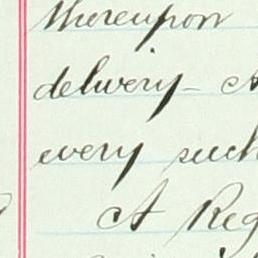 thereupon
delivery - A
every such
A Reg